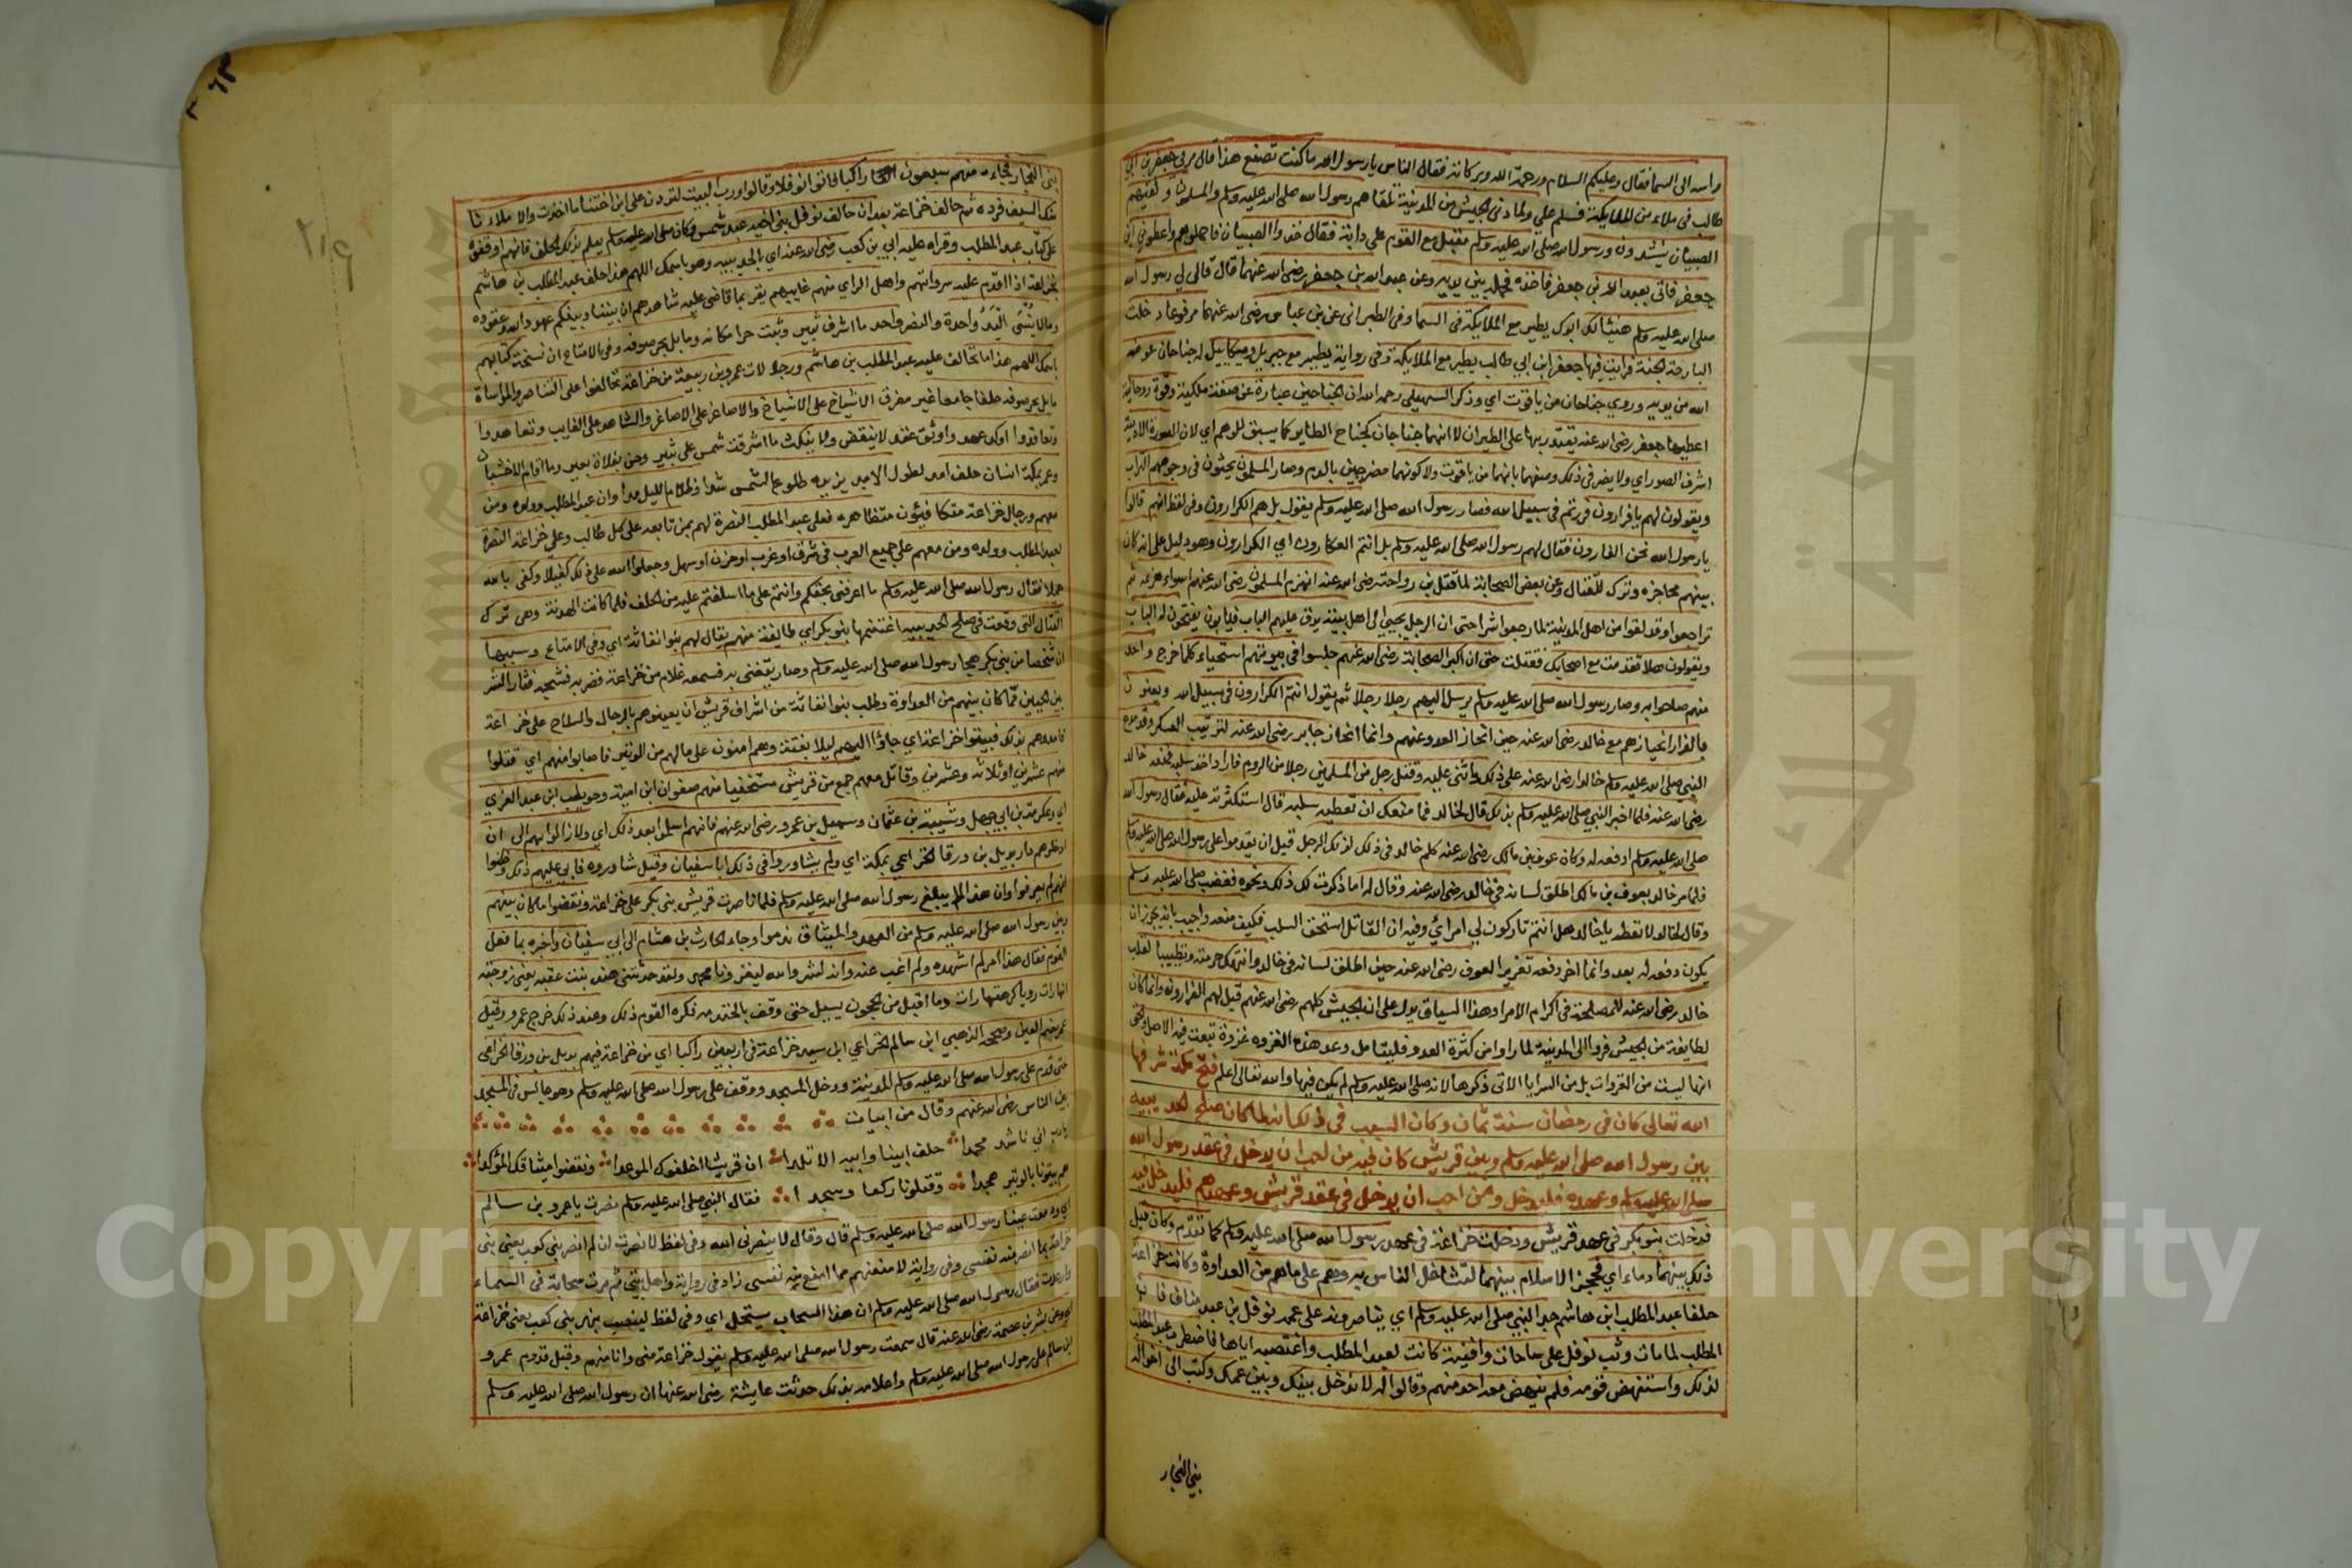 راسه الى السما فقال وعليكم السلام ورحمة الله وبركاته فقال الناس يا رسول الله ما كنت تصنع هذا قال مر بي جعفر بن ابي
طالب في ملاء من الملايكة فسلم علي ولما دنى الجيش من المدينة تلقاهم رسول الله صلى الله عليه وسلم والمسلمون ولقيهم
الصبيان ينشدون ورسول الله صلى الله عليه وسلم مقبل مع القوم على دابة فقال خذوا الصبيان فاحملوهم واعطوني ابن
جعفر فاتى بعبد الله بن جعفر فاخذه فحمله بين يديه وعن عبد الله بن جعفر رضى الله عنهما قال قال لي رسول الله
صلى الله عليه وسلم هنيئا لك ابوك يطير مع الملايكة في السما وفي الطبراني عن بن عباس رضى الله عنهما مرفوعا دخلت
البارحة الجنة فرايت فيها جعفر ابن ابي طالب يطير مع الملايكة وفي رواية يطير مع جبريل وميكاييل له جناحان عوضه
الله من يديه وروي جناحان من ياقوت اي وذكر السهيلي رحمه الله ان الجناحين عبارة عن صفة ملكية وقوة روحانية
اعطيها جعفر رضى الله عنه يقتدر بها على الطيران لا انهما جناحان كجناح الطاير كما يسبق للوهم اي لان الصورة الادمية
اشرف الصور اي ولا يضر في ذلك وصفهما بانهما من ياقوت ولا كونهما مضرجين بالدم وصار المسلمون يحثون في وجوههم التراب
ويقولون لهم يا فرارون فررتم في سبيل الله فصار رسول الله صلى الله عليه وسلم يقول بل هم الكرارون وفي لفظ انهم قالوا
يا رسول الله نحن الفارون فقال لهم رسول الله صلى الله عليه وسلم بل انتم العكارون اي الكرارون وهو دليل على انه كان
بينهم محاجزه وترك للقتال وعن بعض الصحابة لما قتل بن رواحة رضى الله عنه انهزم المسلمون رضى الله عنهم اسواء هزيمه ثم
تراجعوا وقد لقوا من اهل المدينة لما رجعوا شرا حتى ان الرجل يجيئ الى اهل بيته يدق عليهم الباب فيابون يفتحون له الباب
ويقولون هلا تقدمت مع اصحابك فقتلت حتى ان اكبر الصحابة رضى الله عنهم جلسوا في بيوتهم استحياء كلما خرج واحد
منهم صاحوا به وصار رسول الله صلى الله عليه وسلم يرسل اليهم رجلا رجلا ثم يقول انتم الكرارون في سبيل الله ويعنون
بالفرار انحيازهم مع خالد رضى الله عنه حين انحاز العدو عنهم وانما انحاز خالد رضى الله عنه لترتيب العسكر وقد مدح
النبي صلى الله عليه وسلم خالدا رضى الله عنه على ذلك واثنى عليه وقتل رجل من المسلمين رجلا من الروم فاراد اخذ سلبه فمنعه خالد
رضى الله عنه فلما اخبر النبي صلى الله عليه وسلم بذلك قال لخالد فما منعك ان تعطيه سلبه قال استكثرته عليه فقال رسول الله
صلى الله عليه وسلم ادفعه له وكان عوف بن مالك رضى الله عنه كلم خالد في ذلك لذلك الرجل قبل ان يقدموا على رسول الله صلى الله عليه وسلم
فلما مر خالد بعوف بن مالك اطلق لسانه في خالد رضى الله عنه وقال له اما ذكرت لك ذلك ونحوه فغضب صلى الله عليه وسلم
وقال لخالد لا تعطه يا خالد هل انتم تاركون لي امرائي وفيه ان القاتل استحق السلب فكيف منعه واجيب بانه يجوز ان
يكون دفعه له بعد وانما اخر دفعه تعزيرا لعوف رضى الله عنه حين اطلق لسانه في خالد وانتهك حرمته وتطييبا لقلب
خالد رضى الله عنه للمصلحة في اكرام الامرا وهذا السياق يدل على ان الجيش كلهم رضى الله عنهم قيل لهم الفرارون وانما كان
لطايفة من الجيش فروا الى المدينة لما راوا من كثرة العدو فليتامل وعد هذه الغزوه غزوة تبعت فيه الاصل
انها ليست من الغزوات بل من السرايا الاتى ذكرها لانه صلى الله عليه وسلم لم يكن فيها والله تعالى اعلم فتح مكة شرفها
الله تعالى كان في رمضان سنة ثمان وكان السبب في ذلك انه لما كان صلح الحديبيه
بين رسول الله صلى الله عليه وسلم وبين قريش كان فيه من احب ان يدخل في عقد رسول الله
صلى الله عليه وسلم وعهده فليدخل ومن احب ان يدخل في عقد قريش وعهدهم فليدخل فيه
فدخلت بنو بكر في عهد قريش ودخلت خزاعة في عهد رسول الله صلى الله عليه وسلم كما تقدم وكان قبل
ذلك بينهما دماء اي فحجز الاسلام بينهما لتشاغل الناس به وهم على ما هم من العداوة وكانت خزاعة
حلفا عبد المطلب ابن هاشم جد النبي صلى الله عليه وسلم اي يناصرونه على عمه نوفل بن عبد مناف فان
المطلب لما مات وثب نوفل على ساحات وافنية كانت لعبد المطلب واغتصبه اياها فاضطرب عبد المطلب
لذلك واستنهض قومه فلم ينهض معه احد منهم وقالوا له لا ندخل بينك وبين عمك وكتب الى اخواله
بني النجار
بنى النجار فجاء منهم سبعون راكبا فاتوا نوفلا وقالوا ورب البيت لتردن على ابن اختنا ما اخذت والا ملاءنا
منك السيف فرده ثم حالف خزاعة بعد ان حالف نوفل بني اخيه عبد شمس وكان صلى الله عليه وسلم يعلم بذلك الحلف فانهم اوقفوه
على كتاب عبد المطلب وقراه عليه ابي بن كعب رضى الله عنه اي بالحديبيه وهو باسمك اللهم هذا حلف عبد المطلب بن هاشم
لخزاعة اذا قدم عليه سرواتهم واهل الراي منهم غايبهم يقر بما قاضى عليه شاهدهم ان بيننا وبينكم عهود الله وعقوده
وما لا ينسى اليد واحدة والنصر واحد ما اشرف ثبير وثبت حرا مكانه وما بل بحر صوفه وفي الامتاع ان نسخة كتابهم
باسمك اللهم هذا ما تحالف عليه عبد المطلب بن هاشم ورجالات عمرو بن ربيعة من خزاعة تحالفوا على التناصر والمواساة
ما بل بحر صوفه حلفا جامعا غير مفرق الاشياخ على الاشياخ والاصاغر على الاصاغر والشاهد على الغايب وتعاهدوا
وتعاقدوا اوكد عهد واوثق عقد لا ينقض ولا ينكث ما اشرقت شمس على ثبير وحن بفلاة بعير وما اقام الاخشبان
وعمر بمكة انسان حلف امد لطول الامد يزيده طلوع الشمس شدا وظلام الليل مدا وان عبد المطلب وولده ومن
معهم ورجال خزاعة متكافيون متظاهرون فعلى عبد المطلب النصرة لهم بمن تابعه على كل طالب وعلى خزاعة النصرة
لعبد المطلب وولده ومن معهم على جميع العرب في شرق او غرب او حزن او سهل وجعلوا الله على ذلك كفيلا وكفى بالله
حميلا فقال رسول الله صلى الله عليه وسلم ما اعرفني بحقكم وانتم على ما اسلفتم عليه من الحلف فلما كانت الهدنة وهي ترك
القتال التى وقعت في صلح الحديبيه اغتنمها بنو بكر اي طايفة منهم يقال لهم بنو انفاثة اي وفي الامتاع وسببها
ان شخصا من بني بكر هجا رسول الله صلى الله عليه وسلم وصار يتغنى به فسمعه غلام من خزاعة فضربه فشجه فثار الشر
بين الحيين مما كان بينهم من العداوة وطلب بنوا نفاثة من اشراف قريش ان يعينوهم بالرجال والسلاح على خزاعة
فامدوهم بذلك فبيتوا خزاعة اي جاؤا اليهم ليلا بغتة وهم امنون على ما لهم من الوتير فاصابوا منهم اي قتلوا
منهم عشرين او ثلاثة وعشرين وقاتل معهم جمع من قريش مستخفيا منهم صفوان ابن امية وحويطب ابن عبد العزى
اي وعكرمة بن ابي جهل وشيبة بن عثمان وسهيل بن عمرو رضى الله عنهم فانهم اسلموا بعد ذلك اي ولا زالوا بهم الى ان
ادخلوهم دار بديل بن ورقا الخزاعي بمكة اي ولم يشاوروا في ذلك ابا سفيان وقيل شاوروه فابى عليهم ذلك وظنوا
انهم لم يعرفوا وان هذا لم يبلغ رسول الله صلى الله عليه وسلم فلما ناصرت قريش بنى بكر على خزاعة ونقضوا ما كان بينهم
وبين رسول الله صلى الله عليه وسلم من العهد والميثاق ندموا وجاء الحارث بن هشام الى ابي سفيان واخبره بما فعل
القوم فقال هذا امر لم اشهده ولم اغب عنه وانه لشر والله ليغزونا محمد ولقد حدثتني هند بنت عتبه يعني زوجته
انها رات رويا كرهتها رات دما اقبل من الحجون يسيل حتى وقف بالخندمه فكره القوم ذلك وعند ذلك خرج عمرو وقيل
عمر بضم العين وصححه الذهبي ابن سالم الخزاعي ابن سيد خزاعة في اربعين راكبا اي من خزاعة فيهم بديل بن ورقا الخزاعي
حتى قدم على رسول الله صلى الله عليه وسلم المدينة ودخل المسجد ووقف على رسول الله صلى الله عليه وسلم وهو جالس في المسجد
بين الناس رضى الله عنهم وقال من ابيات
يا رب اني ناشد محمدا حلف ابينا وابيه الاتلدا ان قريشا اخلفوك الموعدا ونقضوا ميثاقك المؤكدا
هم بيتونا بالوتير هجدا وقتلونا ركعا وسجدا فقال النبي صلى الله عليه وسلم نصرت يا عمرو بن سالم
ودمعت عينا رسول الله صلى الله عليه وسلم قال وقال لا ينصرني الله وفي لفظ لا نصرت ان لم انصر بني كعب يعني بنى
خزاعة بما انصر به نفسى وفي رواية لامنعنهم مما امنع منه نفسى زاد في رواية واهل بيتي ثم مرت سحابة في السماء
وارعدت فقال رسول الله صلى الله عليه وسلم ان هذا السحاب يستهل اي وفي لفظ لينصب بنصر بنى كعب يعنى خزاعة
وعن بشر بن عصمة رضى الله عنه قال سمعت رسول الله صلى الله عليه وسلم يقول خزاعة منى وانا منهم وقبل قدوم عمرو
ابن سالم على رسول الله صلى الله عليه وسلم واعلامه بذلك حدثت عايشة رضى الله عنها ان رسول الله صلى الله عليه وسلم
٢١٤
Copyright © King Saud University